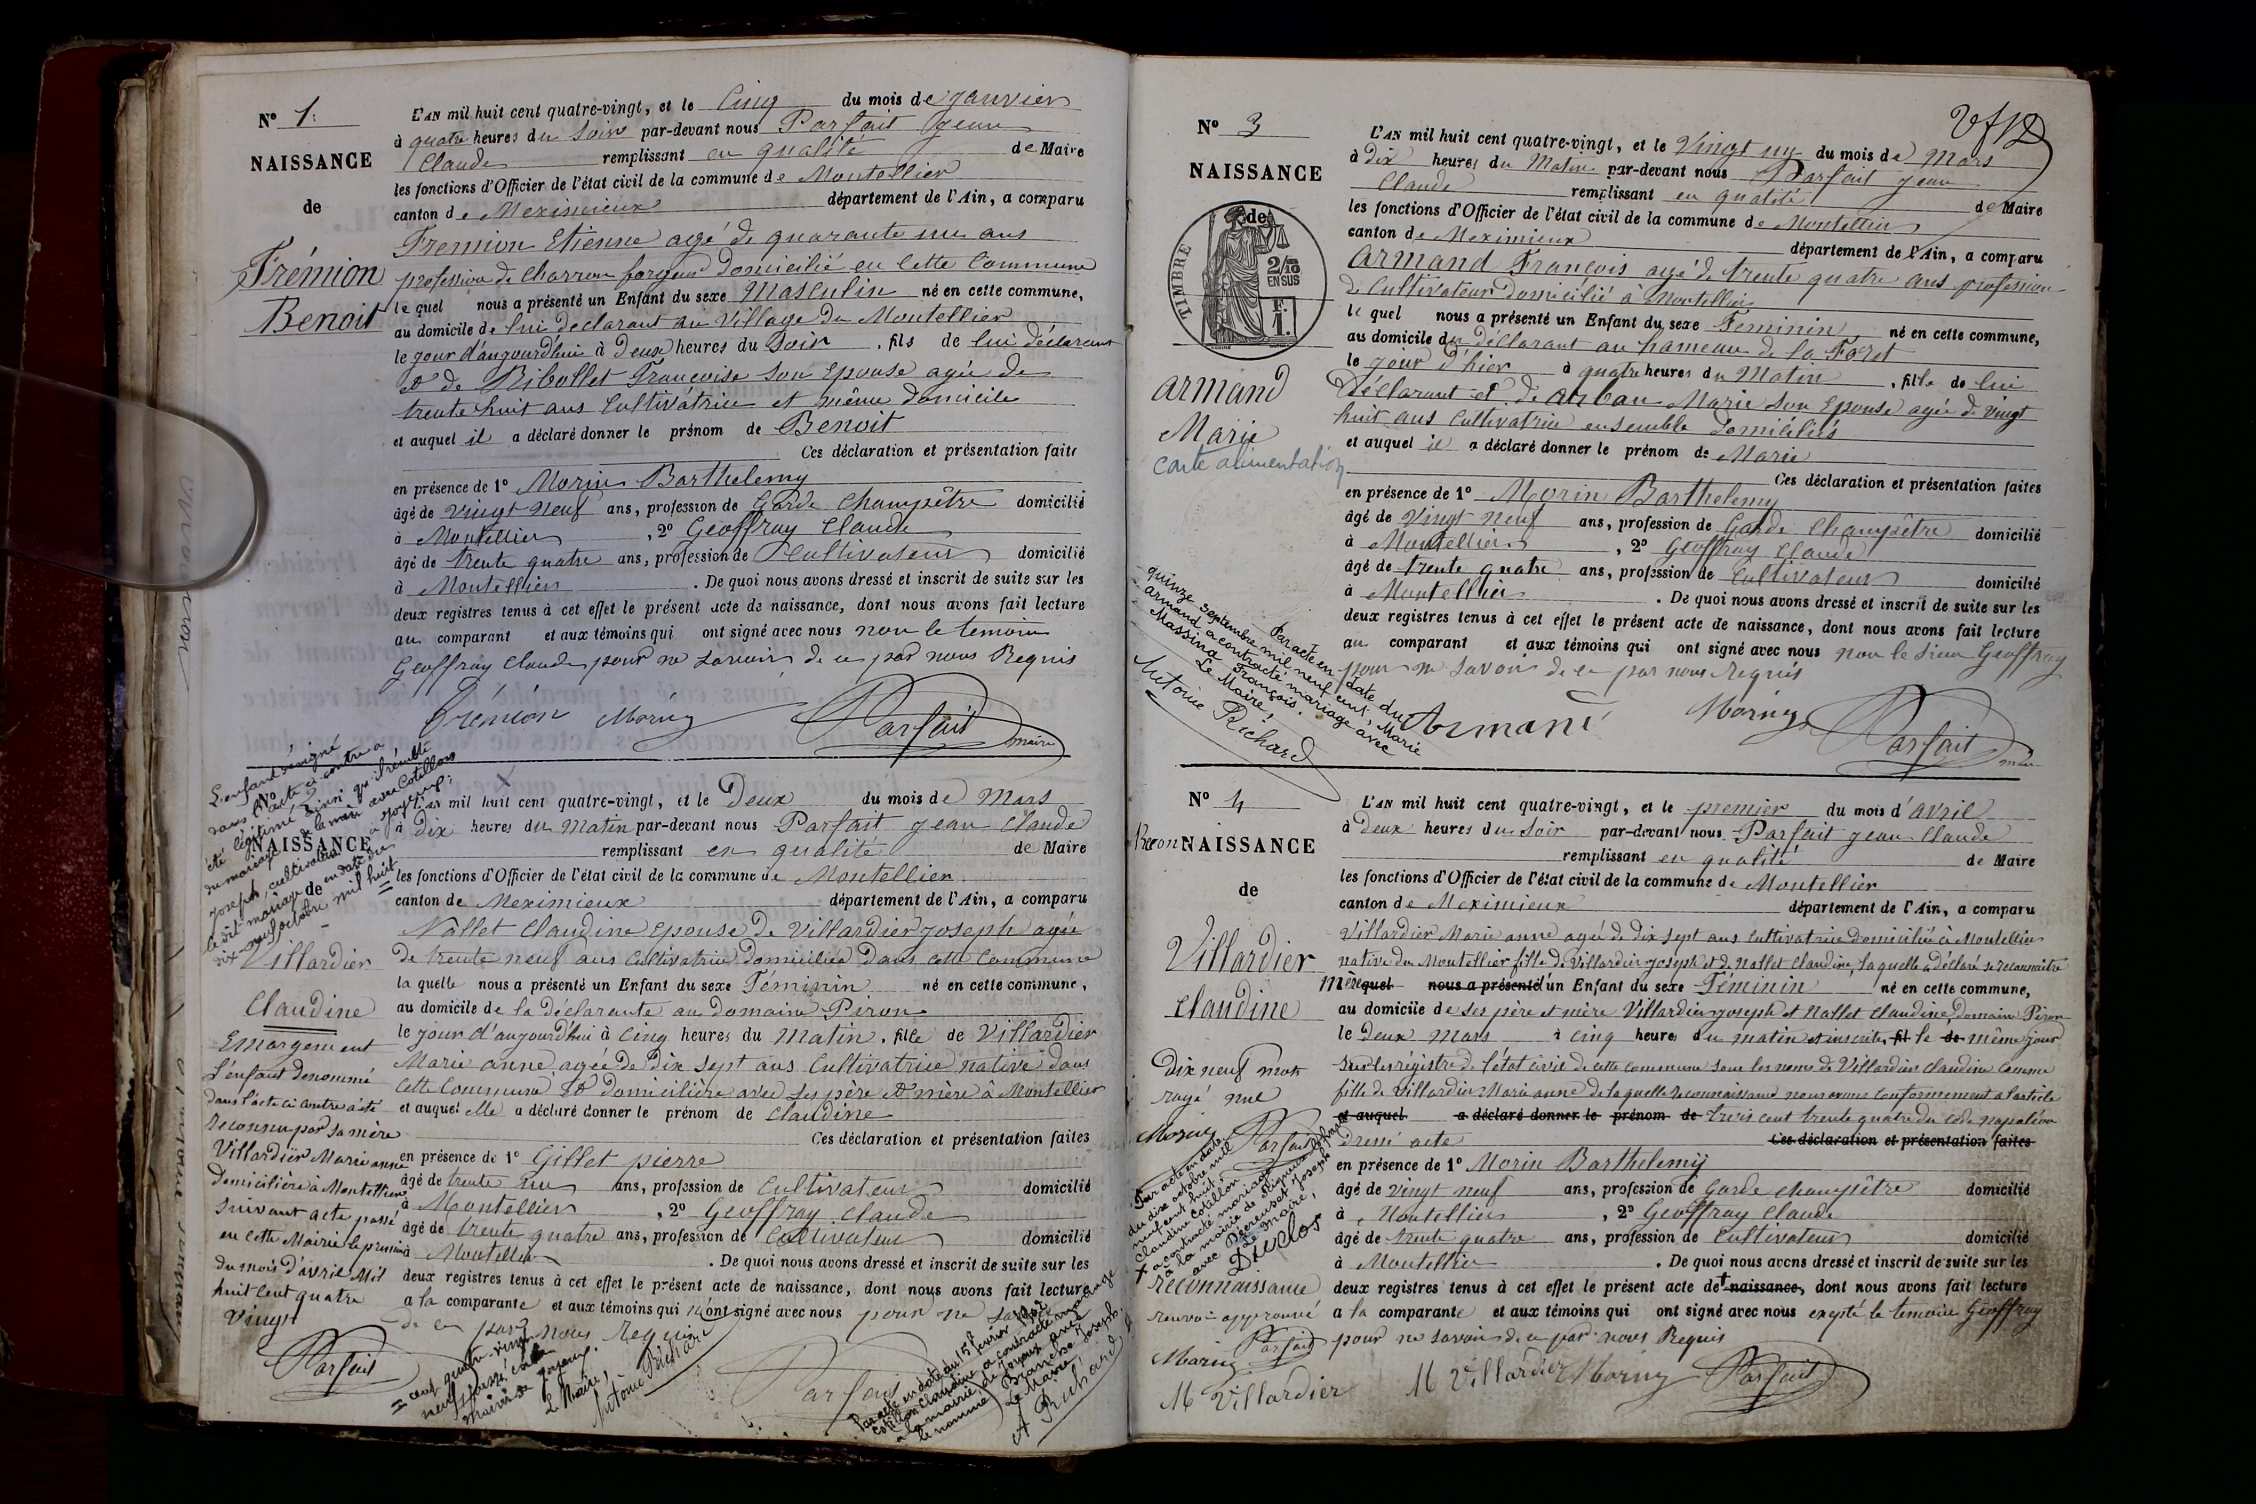 N° 1.
NAISSANCE
de
Frémion
Benoit
L'AN mil huit cent quatre-vingt, et le Cinq du mois de janvier
à quatre heures du Soir par-devant nous Parfait jean
Claude remplissant en qualité de Maire
les fonctions d'Officier de l'état civil de la commune de Montellier
canton de Meximieux département de l'Ain, a comparu
Fremion Etienne agé de quarante un ans
profession de Charron forgeur Domicilié en Cette Commune
le quel nous a présenté un Enfant du sexe Masculin né en cette commune,
au domicile de lui declarant au Village du Montellier
le jour d'aujourd'hui à Deux heures du Soir, fils de lui déclarant
et de Ribollet Françoise Son Epouse agée de
trente huit ans Cultivatrice et même domicile
et auquel il a déclaré donner le prénom de Benoit
Ces déclaration et présentation faite
en présence de 1° Morin Barthelemy
âgé de vingt neuf ans, profession de Garde Champêtre domicilié
à Montellier, 2° Geoffray Claude
âgé de trente quatre ans, profession de Cultivateur domicilié
à Montellier. De quoi nous avons dressé et inscrit de suite sur les
deux registres tenus à cet effet le présent acte de naissance, dont nous avons fait lecture
au comparant et aux témoins qui ont signé avec nous non le temoin
Geoffray Claude pour ne savoir de ce par nous Requis
Frémion Morin Parfait maire
L'enfant désigné
dans l'acte ci-contre a
été légitimé ainsi qu'il résulte
du mariage de la mère avec Cotillon
Joseph, cultivateur à Joyeux;
le dit mariage en date du
dix-neuf octobre mil huit
NAISSANCE
de
Villardier
Claudine
Emargement
L'enfant denommé
dans l'acte ci contre a été
reconnu par sa mère
Villardier Marie anne
domicilière à Montellier
suivant acte passé
en cette Mairie le premier
du mois d'avril Mil
huit cent quatre
Vingt
Parfait
L'AN mil huit cent quatre-vingt, et le Deux du mois de Mars
à dix heures du Matin par-devant nous Parfait jean Claude
remplissant en qualité de Maire
les fonctions d'Officier de l'état civil de la commune de Montellier
canton de Meximieux département de l'Ain, a comparu
Nallet Claudine Epouse de Villardier joseph agée
de trente neuf ans Cultivatrice Domiciliée Dans cette Commune
la quelle nous a présenté un Enfant du sexe Féminin né en cette commune,
au domicile de la déclarante au Domaine Piron
le jour d'aujourd'hui à Cinq heures du Matin, fille de Villardier
Marie anne agée de Dix Sept ans Cultivatrice native dans
Cette Commune et domicilière avec ses père et mère à Montellier
et auquel elle a déclaré donner le prénom de Claudine
Ces déclaration et présentation faites
en présence de 1° Gillet pierre
âgé de trente un ans, profession de Cultivateur domicilié
à Montellier, 2° Geoffray Claude
âgé de trente quatre ans, profession de Cultivateur domicilié
à Montellier. De quoi nous avons dressé et inscrit de suite sur les
deux registres tenus à cet effet le présent acte de naissance, dont nous avons fait lecture
a la comparante et aux témoins qui n'ont signé avec nous pour ne savoir
de ce par nous requis
= cent quatre-vingt
neuf passé en la
mairie de Joyeux.
Le Maire,
Antoine Richard
Parfait
Par acte en date du 15 février
Cotillon Claudine a contracté mariage
à la mairie de Joyeux avec
le nommé Branche Joseph.
Le Maire
A Richard
N° 3
NAISSANCE
de
TIMBRE
2/10
EN SUS
F.
1.
armand
Marie
carte alimentation
Par acte en date du
quinze septembre mil neuf cent, Marie
Armand a contracté mariage avec
Massina François.
Le Maire:
Antoine Richard
L'AN mil huit cent quatre-vingt, et le Vingt un du mois de Mars
à Dix heures du Matin par-devant nous Parfait jean
Claude remplissant en qualité de Maire
les fonctions d'Officier de l'état civil de la commune de Montellier
canton de Meximieux département de l'Ain, a comparu
armand François agé de trente quatre ans profession
de Cultivateur Domicilié à Montellier
le quel nous a présenté un Enfant du sexe Feminin né en cette commune,
au domicile du déclarant au hameau de la Foret
le jour d'hier à quatre heures du Matin, fille de lui
Déclarant et de Marie Son Epouse agée de vingt
huit ans Cultivatrice ensemble domiciliés
et auquel il a déclaré donner le prénom de Marie
Ces déclaration et présentation faites
en présence de 1° Morin Barthelemy
âgé de Vingt neuf ans, profession de Garde Champêtre domicilié
à Montellier, 2° Geoffray Claude
âgé de trente quatre ans, profession de Cultivateur domicilié
à Montellier. De quoi nous avons dressé et inscrit de suite sur les
deux registres tenus à cet effet le présent acte de naissance, dont nous avons fait lecture
au comparant et aux témoins qui ont signé avec nous non le sieur Geoffray
pour ne savoir de ce par nous requis
Armand Morin Parfait maire
N° 4
Recon NAISSANCE
de
Villardier
Claudine
Dix neuf mots
rayé nul
Morin Parfait
Par acte en date
du dix octobre mil
neuf cent huit,
Claudine Cotillon
a contracté mariage
à la mairie de
avec Joseph
Le Maire,
Duclos
+ reconnaissance
renvoi approuvé
Morin Parfait
M Villardier
L'AN mil huit cent quatre-vingt, et le premier du mois d'avril
à Deux heures du Soir par-devant nous Parfait jean Claude
remplissant en qualité de Maire
les fonctions d'Officier de l'état civil de la commune de Montellier
canton de Meximieux département de l'Ain, a comparu
Villardier Marie anne agée de dix sept ans Cultivatrice domiciliée à Montellier
native du Montellier fille de Villardier joseph et de Nallet Claudine, laquelle a déclaré se reconnaître
Mère quel nous a présenté d'un Enfant du sexe Féminin né en cette commune,
au domicile de ses père et mère Villardier joseph et Nallet Claudine, Domaine Piron
le Deux Mars à cinq heures du matin et inscrite, fil le de même jour
sur les régistre de l'état civil de cette commune sous les noms de Villardier Claudine comme
fille de Villardier Marie anne de laquelle reconnaissance nous avons Conformement a l'article
et auquel a déclaré donner le prénom de trois cent trente quatre du code napoléon
dressé acte Ces déclaration et présentation faites
en présence de 1° Morin Barthelemy
âgé de vingt neuf ans, profession de Garde champêtre domicilié
à Montellier, 2° Geoffray Claude
âgé de trente quatre ans, profession de Cultivateur domicilié
à Montellier. De quoi nous avons dressé et inscrit de suite sur les
deux registres tenus à cet effet le présent acte de + naissance, dont nous avons fait lecture
a la comparante et aux témoins qui ont signé avec nous exepté le temoin Geoffray
pour ne savoir de ce par nous Requis
M Villardier Morin Parfait